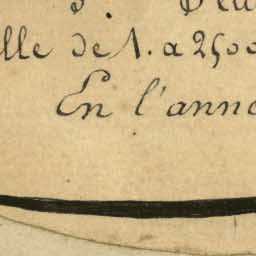 lle de 1. a 2500
En l'anne